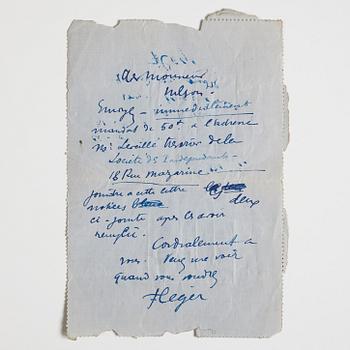 cher monsieur
Nilson.
Envoyez immédiatement
mandat de 50f à l'adresse
Mr Léveillé trésor de la
Société des Indépendants -
18 Rue Mazarine
joindre a cette lettre
notices deux
ci-jointe apres les avoir
remplie.
Cordialement a
vous. Venez me voir
quand vous voudrez
FLeger